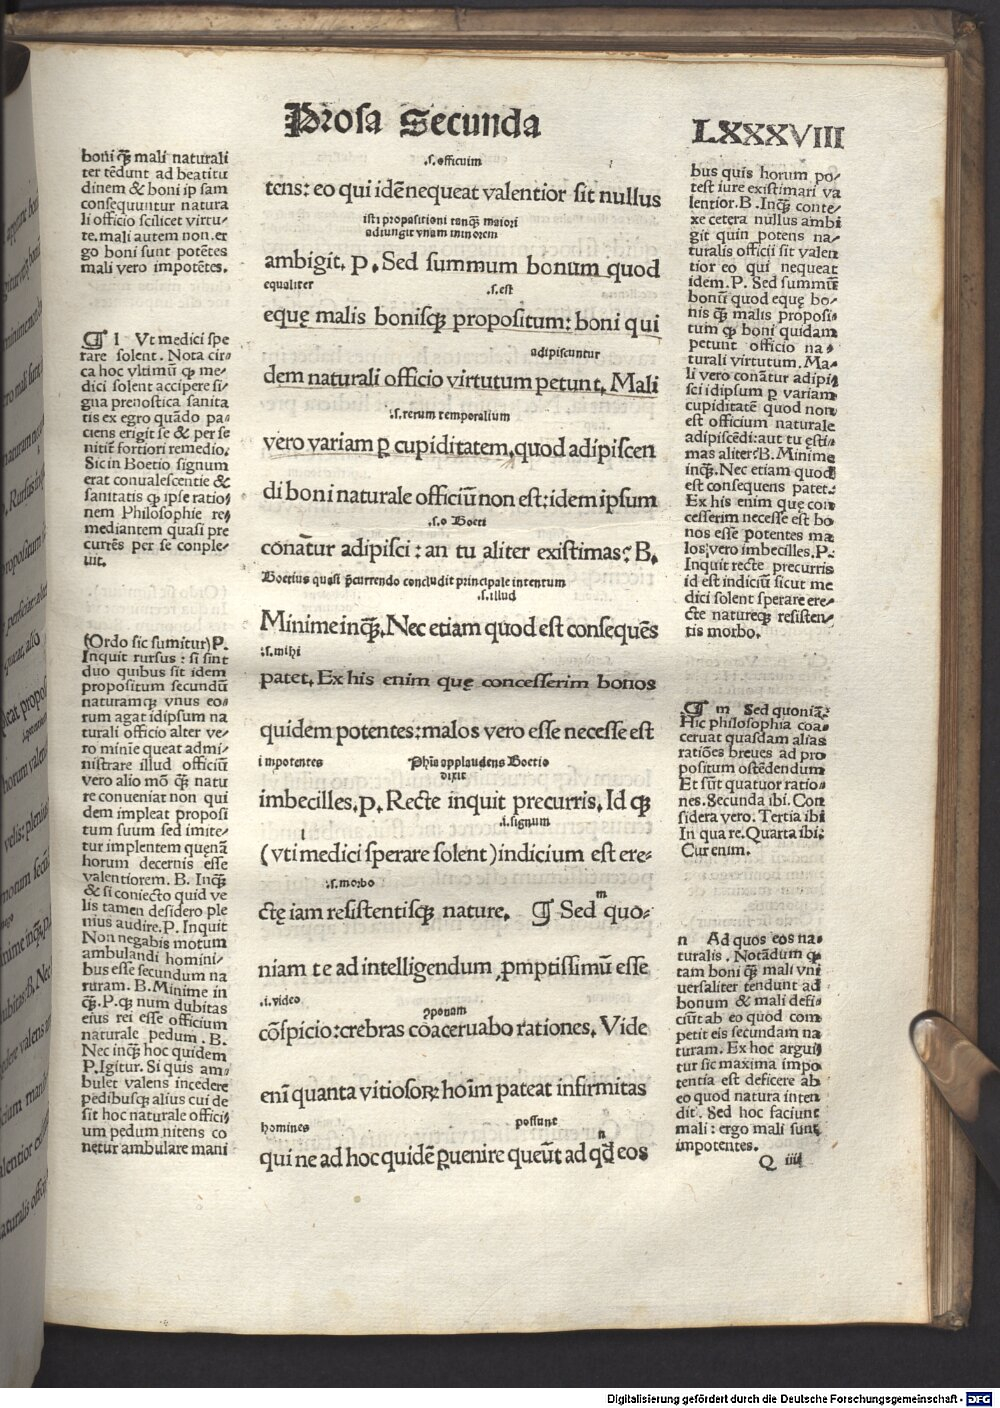 Prosa Secunda
LXXXVIII
boni q̃ȝ mali naturali
ter tẽdunt ad beatitu
dinem & boni ip sam
consequuntur natura
li officio scilicet virtu-
te. mali autem non. er
go boni sunt potẽtes
mali vero impotẽtes.
¶ l Vt medici spe
rare solent. Nota cir-
ca hoc vltimũ ꝙ me-
dici solent accipere si-
gna prenostica sanita
tis ex egro quãdo pa-
ciens erigit se & per se
nitit̃ fortiori remedio.
Sic in Boetio signum
erat conualescentie &
sanitatis ꝙ ipse ratio-
nem Philosophie re-
mediantem quasi pre
currẽs per se conple-
uit.
(Ordo sic sumitur) P.
Inquit rursus: si sint
duo quibus sit idem
propositum secundũ
naturamqȝ vnus eo-
rum agat idipsum na
turali officio alter ve-
ro minĩe queat admi-
nistrare illud officiũ
vero alio mõ q̃ȝ natu
re conueniat non qui
dem impleat proposi
tum suum sed imite-
tur implentem quẽnã
horum decernis esse
valentiorem. B. Inq̃ȝ
& si coniecto quid ve
lis tamen desidero ple
nius audire. P. Inquit
Non negabis motum
ambulandi homini-
bus esse secundum na
ruram. B. Minime in
q̃ȝ. P. qȝ num dubitas
eius rei esse officium
naturale pedum. B.
Nec inq̃ȝ hoc quidem
P. Igitur. Si quis am-
bulet valens incedere
pedibusqȝ alius cui de
sit hoc naturale offici-
um pedum nitens co
netur ambulare mani
.s. officuim
tens: eo qui idẽ nequeat valentior sit nullus
isti propositioni tanqȝ maiori
adiungit vnam minorem
ambigit. P. Sed summum bonum quod
equaliter .s. est
eque̜ malis bonisqȝ propositum: boni qui
adipiscuntur
dem naturali officio virtutum petunt. Mali
.s. rerum temporalium
vero variam ꝑ cupiditatem, quod adipiscen
di boni naturale officiũ non est: idem ipsum
.s. o Boeti
conat̃ur adipisci: an tu aliter existimas: B.
Boetius quasi p̃currendo concludit principale intentum
.s. illud
Minime inq̃ȝ. Nec etiam quod est consequẽs
.s. mihi
patet. Ex his enim que̜ concesserim bonos
quidem potentes: malos vero esse necesse est
impotentes Ph̃ia applaudens Boetio
dixit
imbecilles. P. Recte inquit precurris. Id qȝ
.i. signum
l
(vti medici sperare solent) indicium est ere-
.s. morbo
m
cte̜ iam resistentisqȝ nature. ¶ Sed quo-
niam te ad intelligendum ꝓmptissimũ esse
.i. video ꝓponam
cõspicio: crebras cõaceruabo rationes. Vide
enĩ quanta vitiosoꝝ hoĩm pateat infirmitas
homines possunt
n
qui ne ad hoc quidẽ ꝑuenire queũt ad qd̃ eos
bus quis horum po-
test iure existimari va
lentior. B. Inq̃ȝ conte-
xe cetera nullus ambi
git quin potens na-
turalis officii sit valen
tior eo qui nequeat
idem. P. Sed summũ
bonũ quod eque̜ bo-
nis q̃ȝ malis proposi-
tum ꝙ boni quidam
petunt officio na-
turali virtutum. Ma-
li vero conãtur adipi-
sci idipsum ꝑ variam
cupiditatẽ quod non
est officium naturale
adipiscẽdi: aut tu e̜sti-
mas aliter: B. Minime
inq̃ȝ. Nec etiam quod
est consequens patet.
Ex his enim que̜ con
cesserim necesse est bo
nos esse potentes ma
los: vero imbecilles. P.
Inquit recte precurris
id est indiciũ sicut me
dici solent sperare ere-
cte natureqȝ resisten-
tis morbo.
¶ m Sed quoniã:
Hic philosophia coa-
ceruat quasdam alias
ratiões breues ad pro
positum ostẽdendum
Et sũt quatuor ratio-
nes. Secunda ibi. Con
sidera vero. Tertia ibi
In qua re. Quarta ibi:
Cur enim.
n Ad quos eos na-
turalis. Notãdum ꝙ
tam boni q̃ȝ mali vni
uersaliter tendunt ad
bonum & mali defi-
ciũt ab eo quod com
petit eis secundam na
turam. Ex hoc argui
tur sic maxima impo
tentia est deficere ab
eo quod natura inten
dit. Sed hoc faciunt
mali: ergo mali sunt
impotentes.
Q iiii
Digitalisierung gefördert durch die Deutsche Forschungsgemeinschaft - DFG